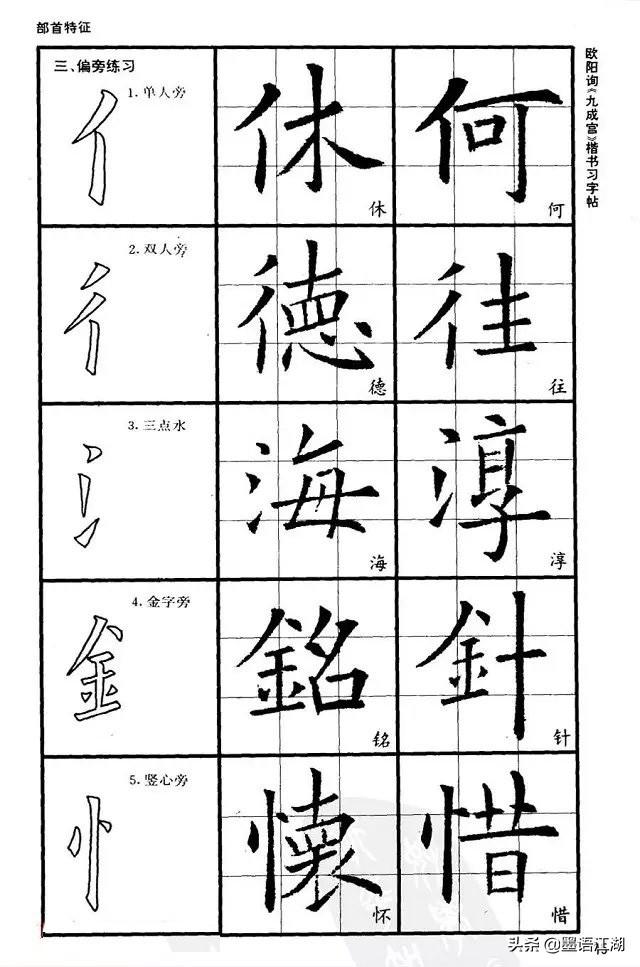 部首特征
欧阳询《九成宫》楷书习字帖
三、偏旁练习
1. 单人旁
亻
休
休
何
何
2. 双人旁
彳
德
德
往
往
3. 三点水
氵
海
海
淳
淳
4. 金字旁
釒
銘
铭
針
针
5. 竖心旁
忄
懷
怀
惜
惜
头条 @墨语江湖